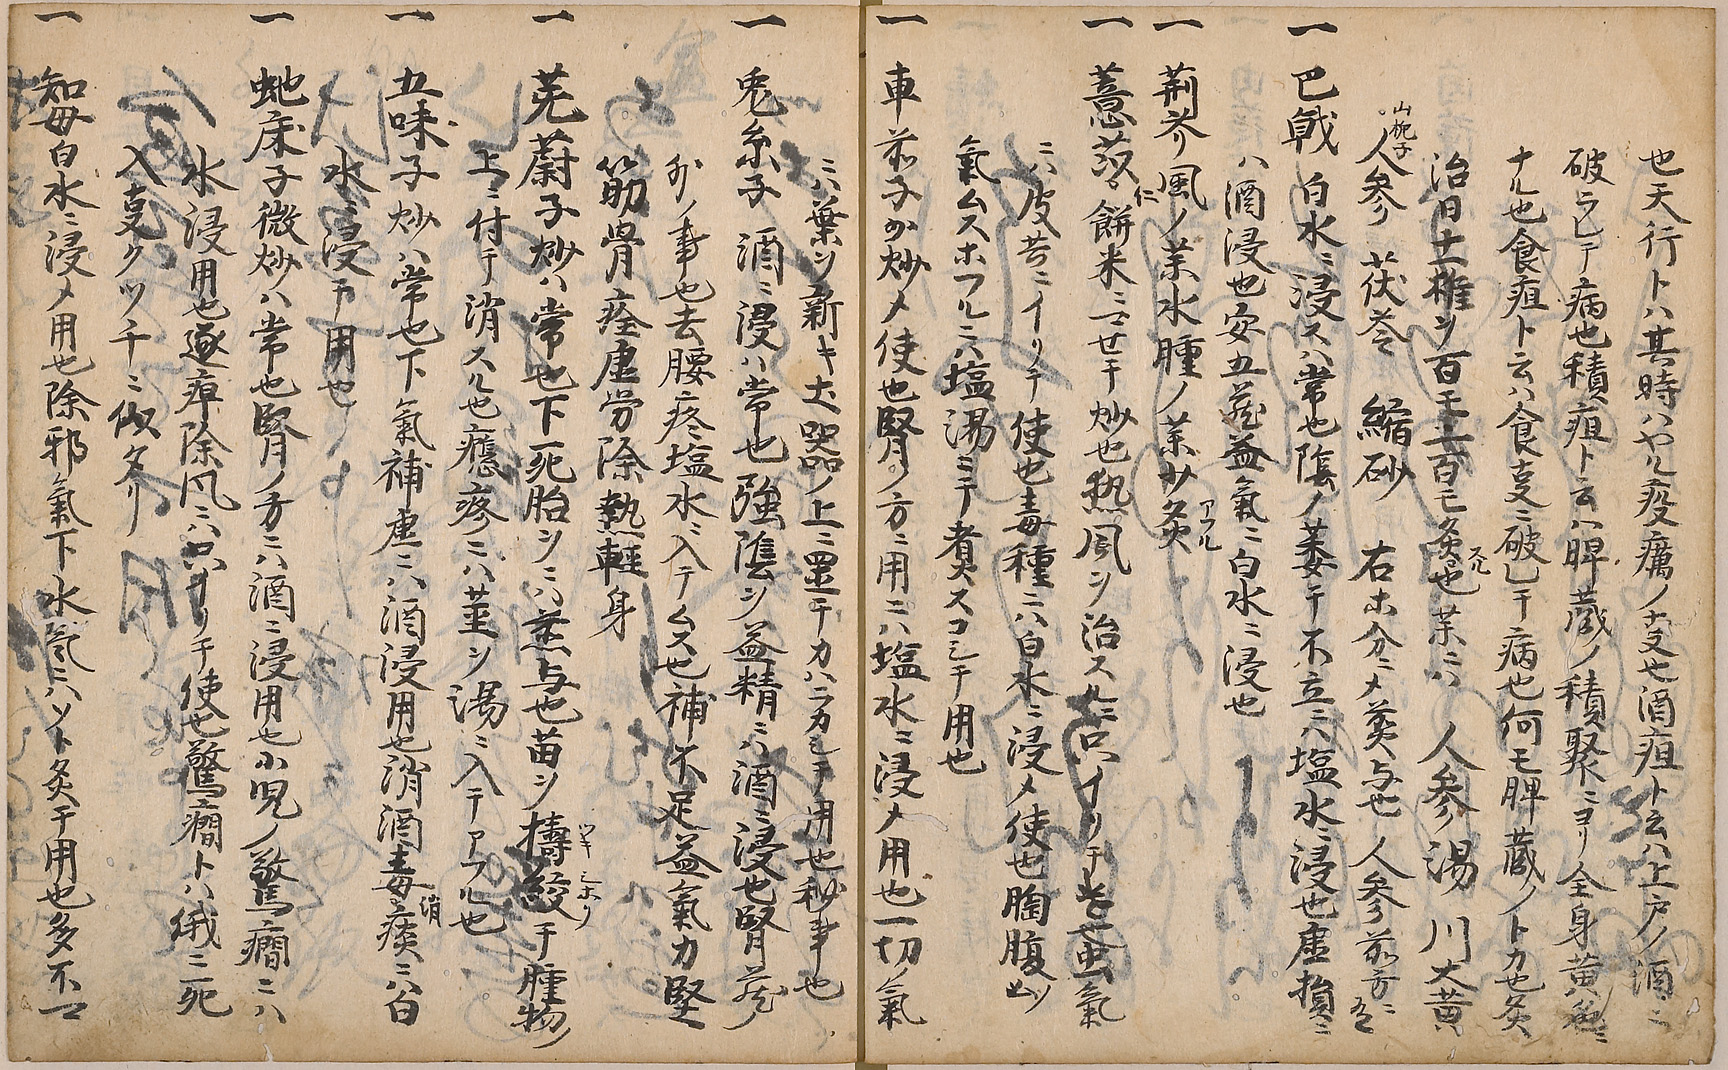 也天行トハ其時ハヤル疫癘ノ支也酒疸ト云ハ上戸ノ酒ニ
破ラレテ病也積疸ト云ハ脾蔵ノ積聚ニヨリ全身黄色ニ
ナル也食疸ト云ハ食支ニ破レテ病也何モ脾蔵ノトカ也灸
治日十一椎ヲ百モ二百モ灸スル也薬ニハ 人参湯 川大黄
山梔子 人参 茯苓 縮砂 右ホ分ニメ煎与也 人参前方ニ
一 巴戟 白水ニ浸スハ常也陰ノ萎テ不立ニハ塩水ニ浸也虚損ニ
ハ酒浸也安五蔵益氣ニ白水ニ浸也
一 荆芥 風ノ薬水腫ノ薬也少炙アフル
一 薏苡仁 餅米ニマセテ炒也熱風ヲ治スルニハイリテ也虫氣
ニハ皮共ニイリテ使也毒種ニハ白水ニ浸メ使也胸腹
氣ムスホフルニハ塩湯ニテ煮スコシテ用也
一 車前子 少炒メ使也腎ノ方ニ用ニハ塩水ニ浸メ用也一切ノ氣
ニハ葉ヲ新キ土器ノ上ニ置テカハラカシテ用也秘事也
一 兎糸子 酒ニ浸ハ常也強陰ヲ益精ニハ酒ニ浸也腎蔵
外ノ事也去腰疼塩水ニ入テムス也補不足益氣力堅
筋骨痊虚労除熱軽身
一 茺蔚子 炒ハ常也下死胎ヲニハ煎与也苗ヲ擣ツキ絞シホリテ腫物ノ
上ニ付テ消スル也癮疹ニハ茎ヲ湯ニ入テアフル也
一 五味子 炒ハ常也下氣補虚ニハ酒浸用也消酒毒消痰ニハ白
水ニ浸テ用也
一 虵床子 微炒ハ常也腎ノ方ニハ酒ニ浸用也小児ノ驚癇ニハ
水浸用也逐痺除風ニハ只イリテ使也驚癇トハ俄ニ死
入支クツチニ似タリ
一 知母 白水ニ浸メ用也除邪氣下水氣ニハソト炙テ用也多不一